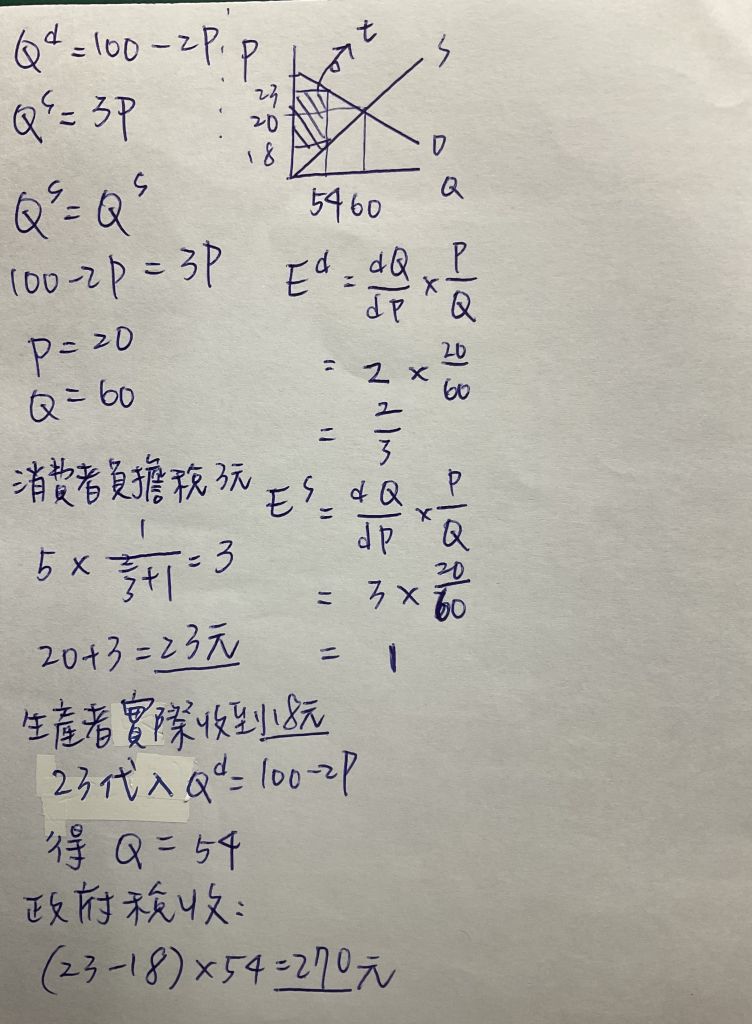 Qᵈ = 100 - 2P
Qˢ = 3P
Qˢ = Qˢ
100 - 2P = 3P
P = 20
Q = 60
消費者負擔稅3元
5 × 1/(2/3 + 1) = 3
20 + 3 = 23元
生產者實際收到18元
23代入 Qᵈ = 100 - 2P
得 Q = 54
政府稅收：
(23 - 18) × 54 = 270元
P
t
S
23
20
18
D
54 60
Q
Eᵈ = dQ/dP × P/Q
= 2 × 20/60
= 2/3
Eˢ = dQ/dP × P/Q
= 3 × 20/60
= 1